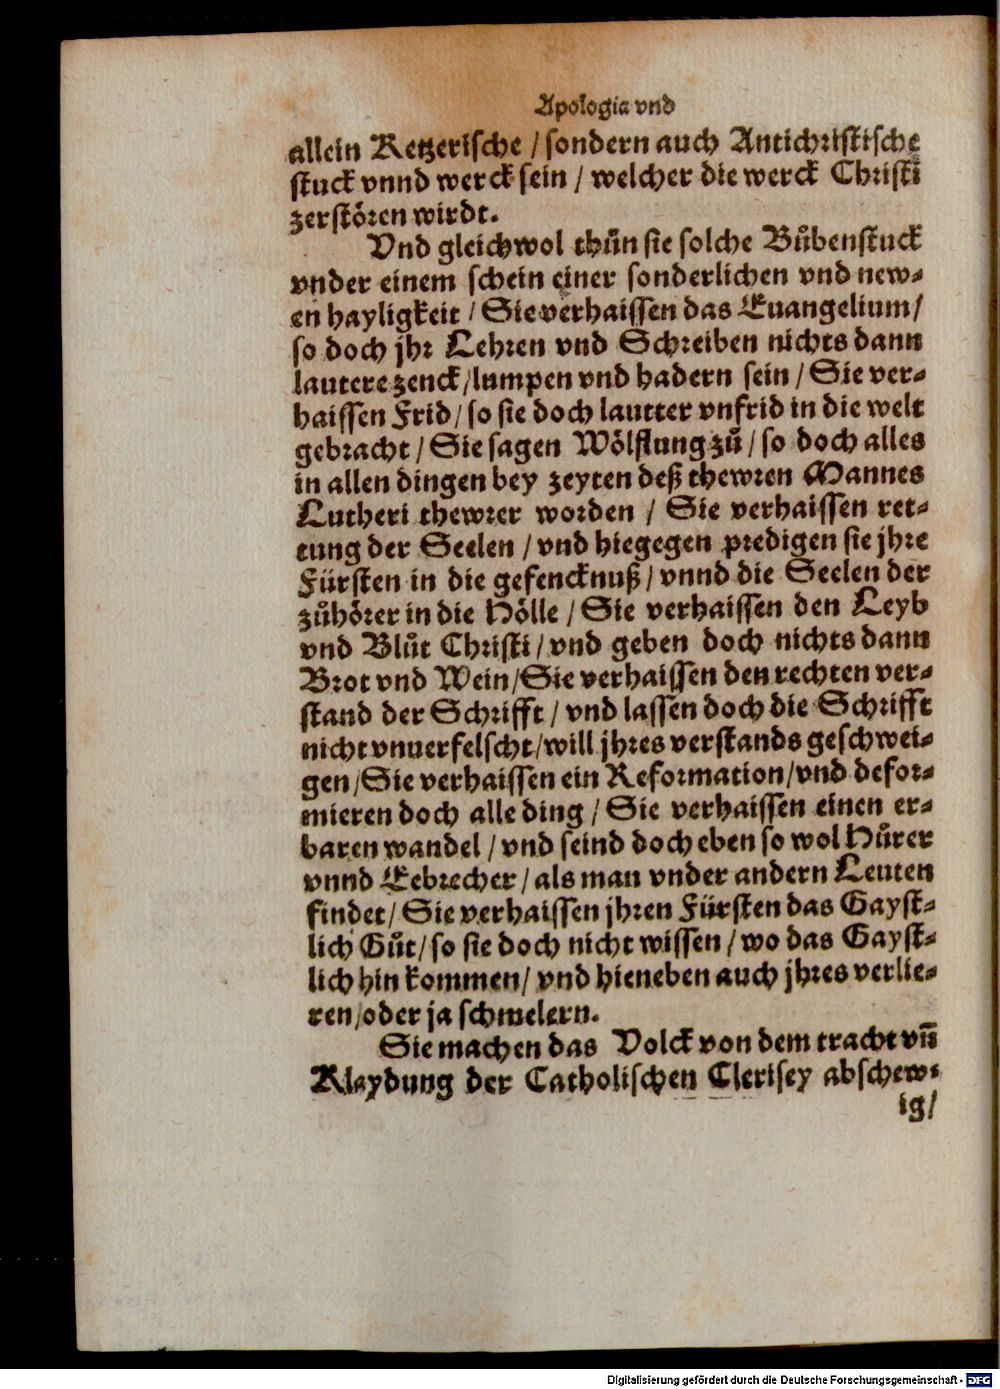 Apologia vnd
allein Ketzerische / sondern auch Antichristische
stuck vnnd werck sein / welcher die werck Christi
zerstören wirdt.
Vnd gleichwol thůn sie solche Bůbenstuck
vnder einem schein einer sonderlichen vnd new-
en hayligkeit / Sie verhaissen das Euangelium /
so doch jhr Lehren vnd Schreiben nichts dann
lautere zenck / lumpen vnd hadern sein / Sie ver-
haissen Frid / so sie doch lautter vnfrid in die welt
gebracht / Sie sagen Wölflung zů / so doch alles
in allen dingen bey zeyten deß thewren Mannes
Lutheri thewrer worden / Sie verhaissen ret-
tung der Seelen / vnd hiegegen predigen sie jhre
Fürsten in die gefencknuß / vnnd die Seelen der
zůhörer in die Hölle / Sie verhaissen den Leyb
vnd Blůt Christi / vnd geben doch nichts dann
Brot vnd Wein / Sie verhaissen den rechten ver-
stand der Schrifft / vnd lassen doch die Schrifft
nicht vnuerfelscht / will jhres verstands geschwei-
gen / Sie verhaissen ein Reformation / vnd defor-
mieren doch alle ding / Sie verhaissen einen er-
baren wandel / vnd seind doch eben so wol Hůrer
vnnd Eebrecher / als man vnder andern Leuten
findet / Sie verhaissen jhren Fürsten das Gayst-
lich Gůt / so sie doch nicht wissen / wo das Gayst-
lich hin kommen / vnd hieneben auch jhres verlie-
ren / oder ja schmelern.
Sie machen das Volck von dem tracht vñ
Klaydung der Catholischen Clerisey abschew-
ig /
Digitalisierung gefördert durch die Deutsche Forschungsgemeinschaft - DFG